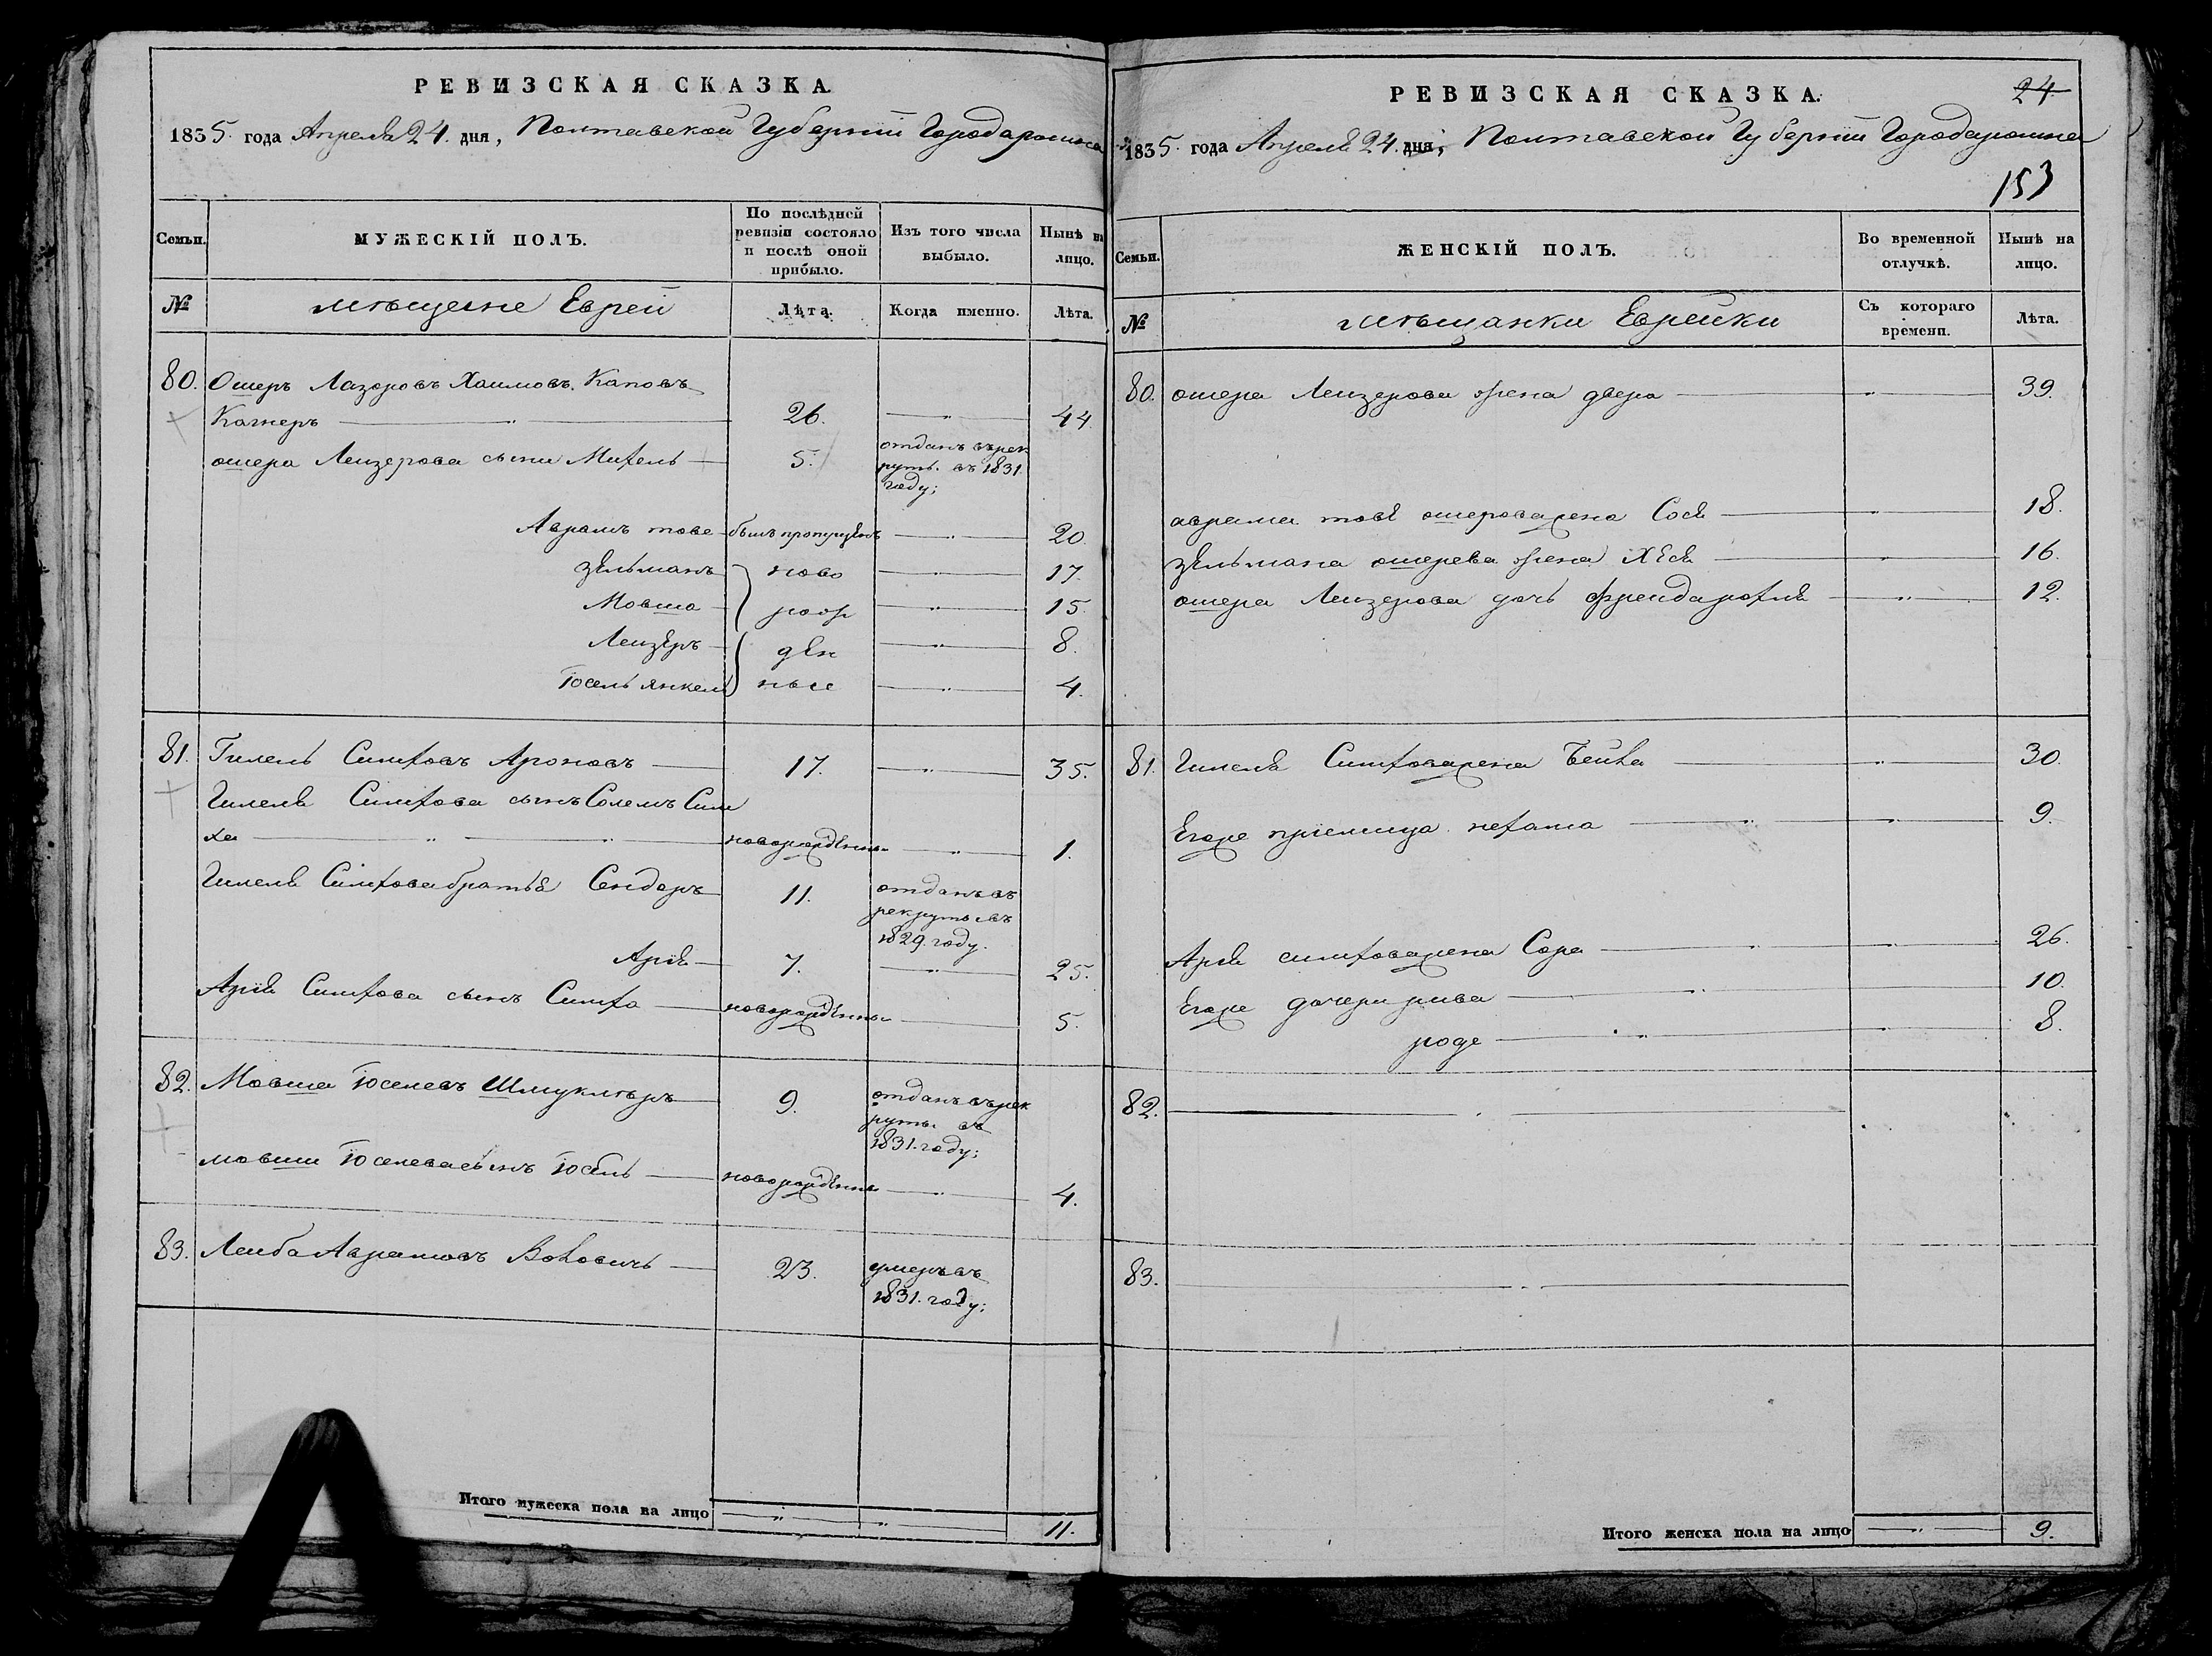 РЕВИЗСКАЯ СКАЗКА.
1835. года Апреля 24. дня, Полтавской Губернии Города
Семьи.
МУЖЕСКІЙ ПОЛЪ.
По послѣдней ревизіи состояло и послѣ оной прибыло.
Изъ того числа выбыло.
Нынѣ на лицо.
№
мѣщане Евреи
Лѣта.
Когда именно.
Лѣта.
80. Ошеръ Лазоровъ Хаимовъ Каповъ
26. 44
ошера Леизерова сыни 5. отданъ въ рек
руты. въ 1831.
году;
Аврамъ тове былъ пропущенъ 20
зельманъ ново 17.
Мовша рож 15.
Леизеръ ден 8.
Іосель янкель ные 4.
81. Гилель Симховъ Ароновъ 17. 35.
Гилеля Симхова сынъ Солемъ Сим
ха новорожденны 1.
Гилеля Симхова братья Сендеръ 11. отданъ въ
рекруты въ
1829. году.
Арія 7. 25.
Арія Симхова сынъ Симха новорожденны 5.
82. Мовша Іоселевъ Шмуклѣръ 9. отданъ въ рек
руты. въ
1831. году;
мовши Іоселева сынъ Іосель новорожденны 4.
83. Леиба Аврамовъ 23. умеръ въ
1831. году;
Итого мужеска пола на лицо 11.
РЕВИЗСКАЯ СКАЗКА.
24
1835. года Апреля 24. дня, Полтавской Губернии Города
153
Семьи.
ЖЕНСКІЙ ПОЛЪ.
Во временной отлучкѣ.
Нынѣ на лицо.
№
мѣщанки Еврейки
Съ котораго времени.
Лѣта.
80. ошера Леизерова жена двера 39.
аврама товія ошерова жена Сося 18.
зельмана ошерева жена Хеся 16.
ошера Леизерова дочь 12.
81. Гилеля Симхова жена Бейла 30.
Егоже приемица нехама 9.
Арія симхова жена Сора 26.
Егоже дочери рива 10.
роде 8.
82.
83.
Итого женска пола на лицо 9.